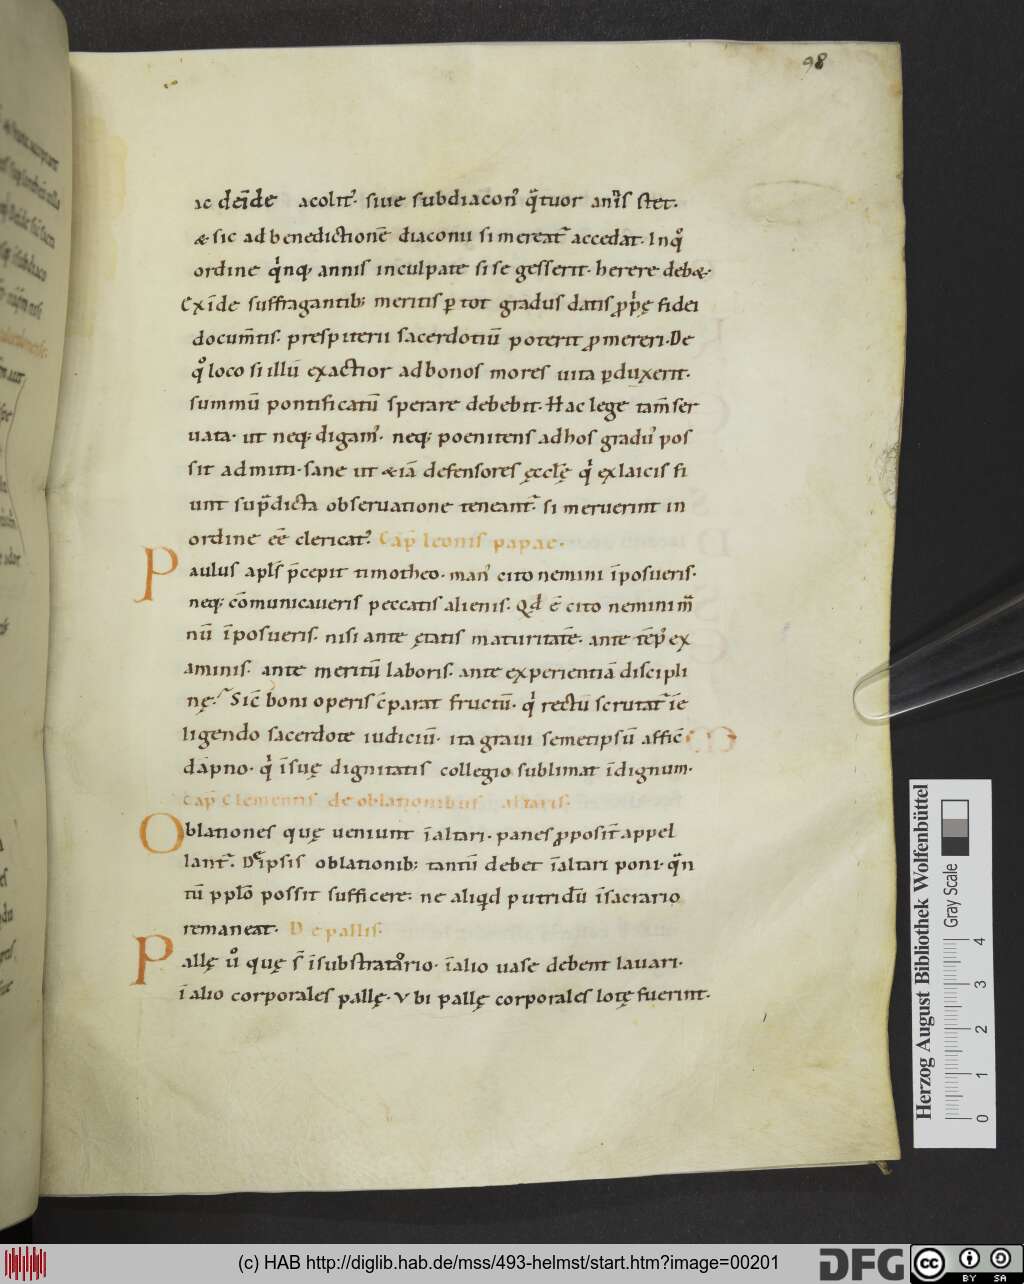 98
ac deīde acolit᷒. siue subdiacon᷒ q̄tuor annis stet.
& sic ad benedictionē diaconii si mereat᷒ accedat. In q̊
ordine q̇nq; annis inculpate si se gesserit. herere deb&.
Exīde suffragantib; meritis ꝑ tot gradus datis ꝓprię fidei
docum̄tis. prespiterii sacerdotiū poterit ꝓmereri. De
q̊ loco si illū exactior ad bonos mores uita ꝑduxerit.
summū pontificatū sperare debebit. Hac lege tam̄ ser
uata. ut neq; digam᷒. neq; poenitens ad hos grad᷒ pos
sit admitti. sane ut &iā defensores ęcclę̄ q̇ ex laicis fi
unt sup̄dicta obseruatione teneant᷒. si meruerint in
ordine eē clericat᷒. Cap̄ leonis papae.
Paulus apl̄s p̄cepit timotheo. man᷒ cito nemini īposueris.
neq; cōmunicaueris peccatis alienis. Qd̄ ē cito nemini m̄
nū īposueris. nisi ante ętatis maturitatē. ante tēp᷒ ex
aminis. ante meritū laboris. ante experientiā discipli
nę. Sic̄ boni operis c̄parat fructū. q̇ rectū scrutat᷒ ī e
ligendo sacerdote iudiciū. ita graui semetipsū affic̄
dāpno. q̇ ī suę dignitatis collegio sublimat īdignum.
Cap̄ Clementis de oblationibus altaris.
Oblationes quę ueniunt ī altari. panes ꝓposit᷒ appel
lant᷒. De ipsis oblationib; tantū debet ī altari poni. q̄n
tū pplō possit sufficere. ne aliq̇d putridū ī sacrario
remaneat. De pallis.
Pallę ů quę s̄ ī substratorio. ī alio uase debent lauari.
ī alio corporales pallę. Vbi pallę corporales lotę fuerint.
Herzog August Bibliothek Wolfenbüttel
Gray Scale
0 1 2 3 4
(c) HAB http://diglib.hab.de/mss/493-helmst/start.htm?image=00201
DFG
cc BY SA